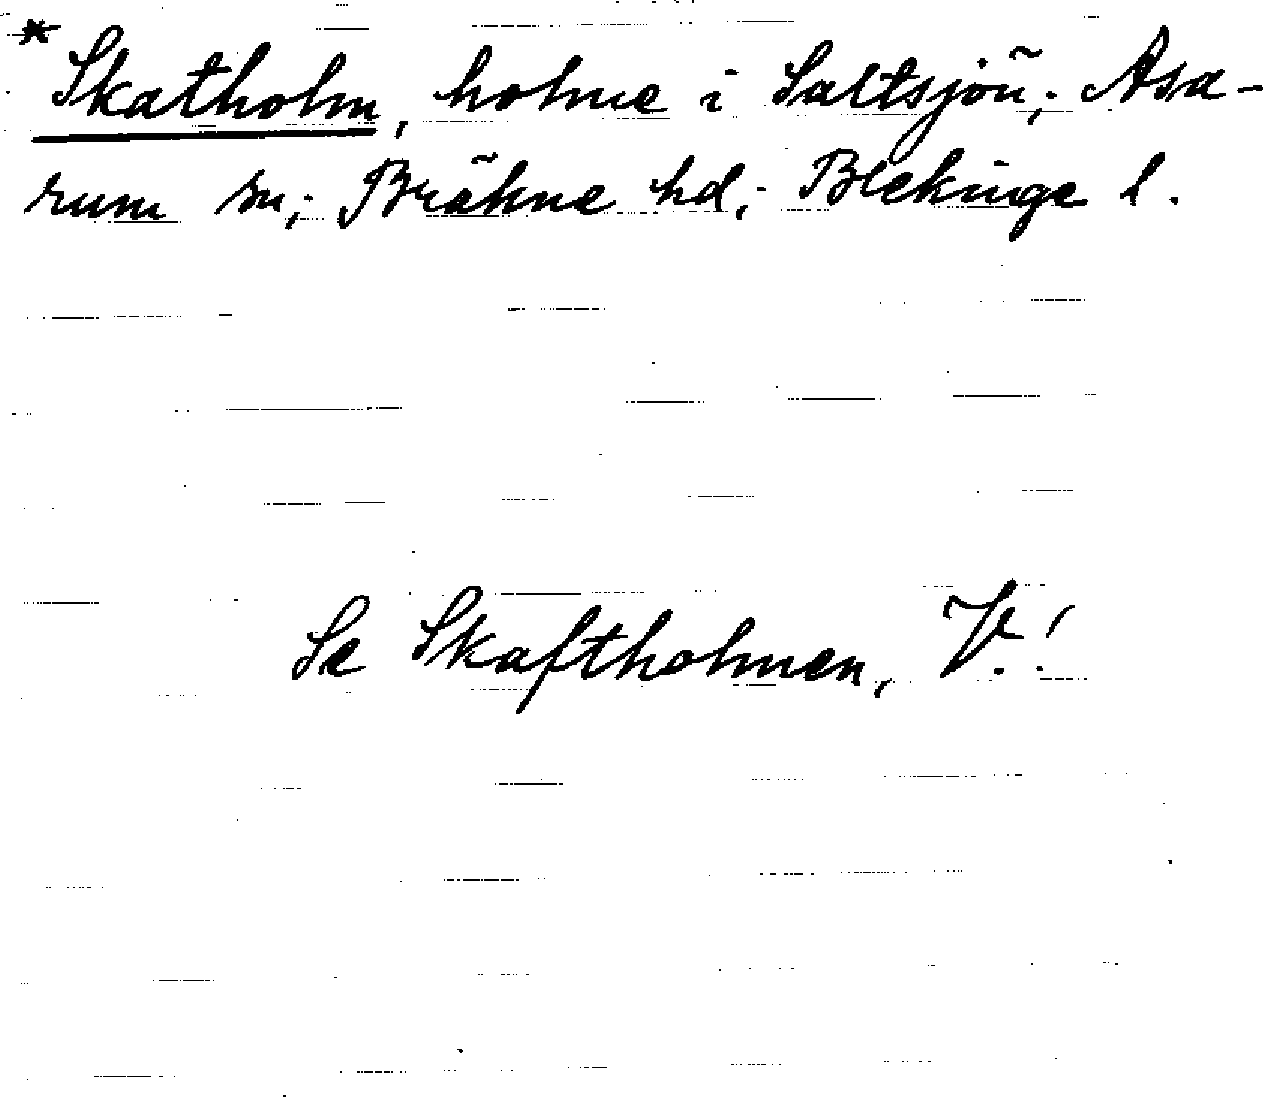 *Skatholm, holme i Saltsjön; Asa-
rum sn; Bräkne hd; Blekinge l.
Se Skaftholmen, V.!